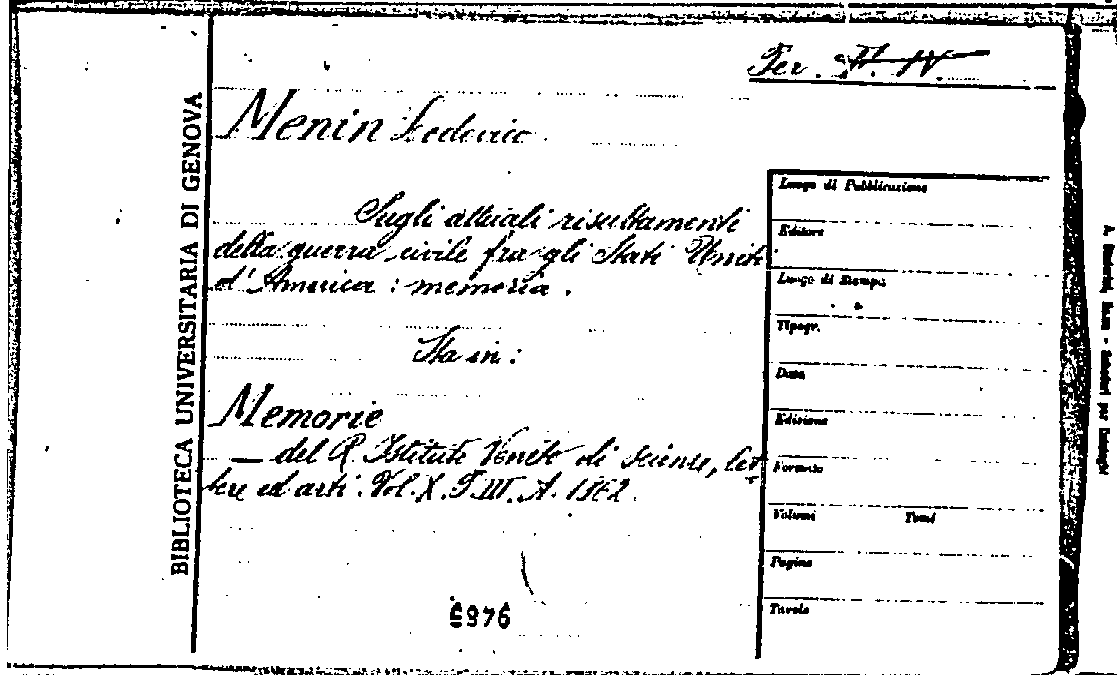 Per.
Menin Lodovico
Sugli attuali risultamenti
della guerra civile fra gli Stati Uniti
d'America: memoria.
Sta in:
Memorie
— del R. Istituto Veneto di scienze, let-
tere ed arti. Vol. X. P. III. A. 1862.
6976
BIBLIOTECA UNIVERSITARIA DI GENOVA
Luogo di Pubblicazione
Editore
Luogo di Stampa
Tipogr.
Data
Edizione
Formato
Volumi Tomi
Pagine
Tavole